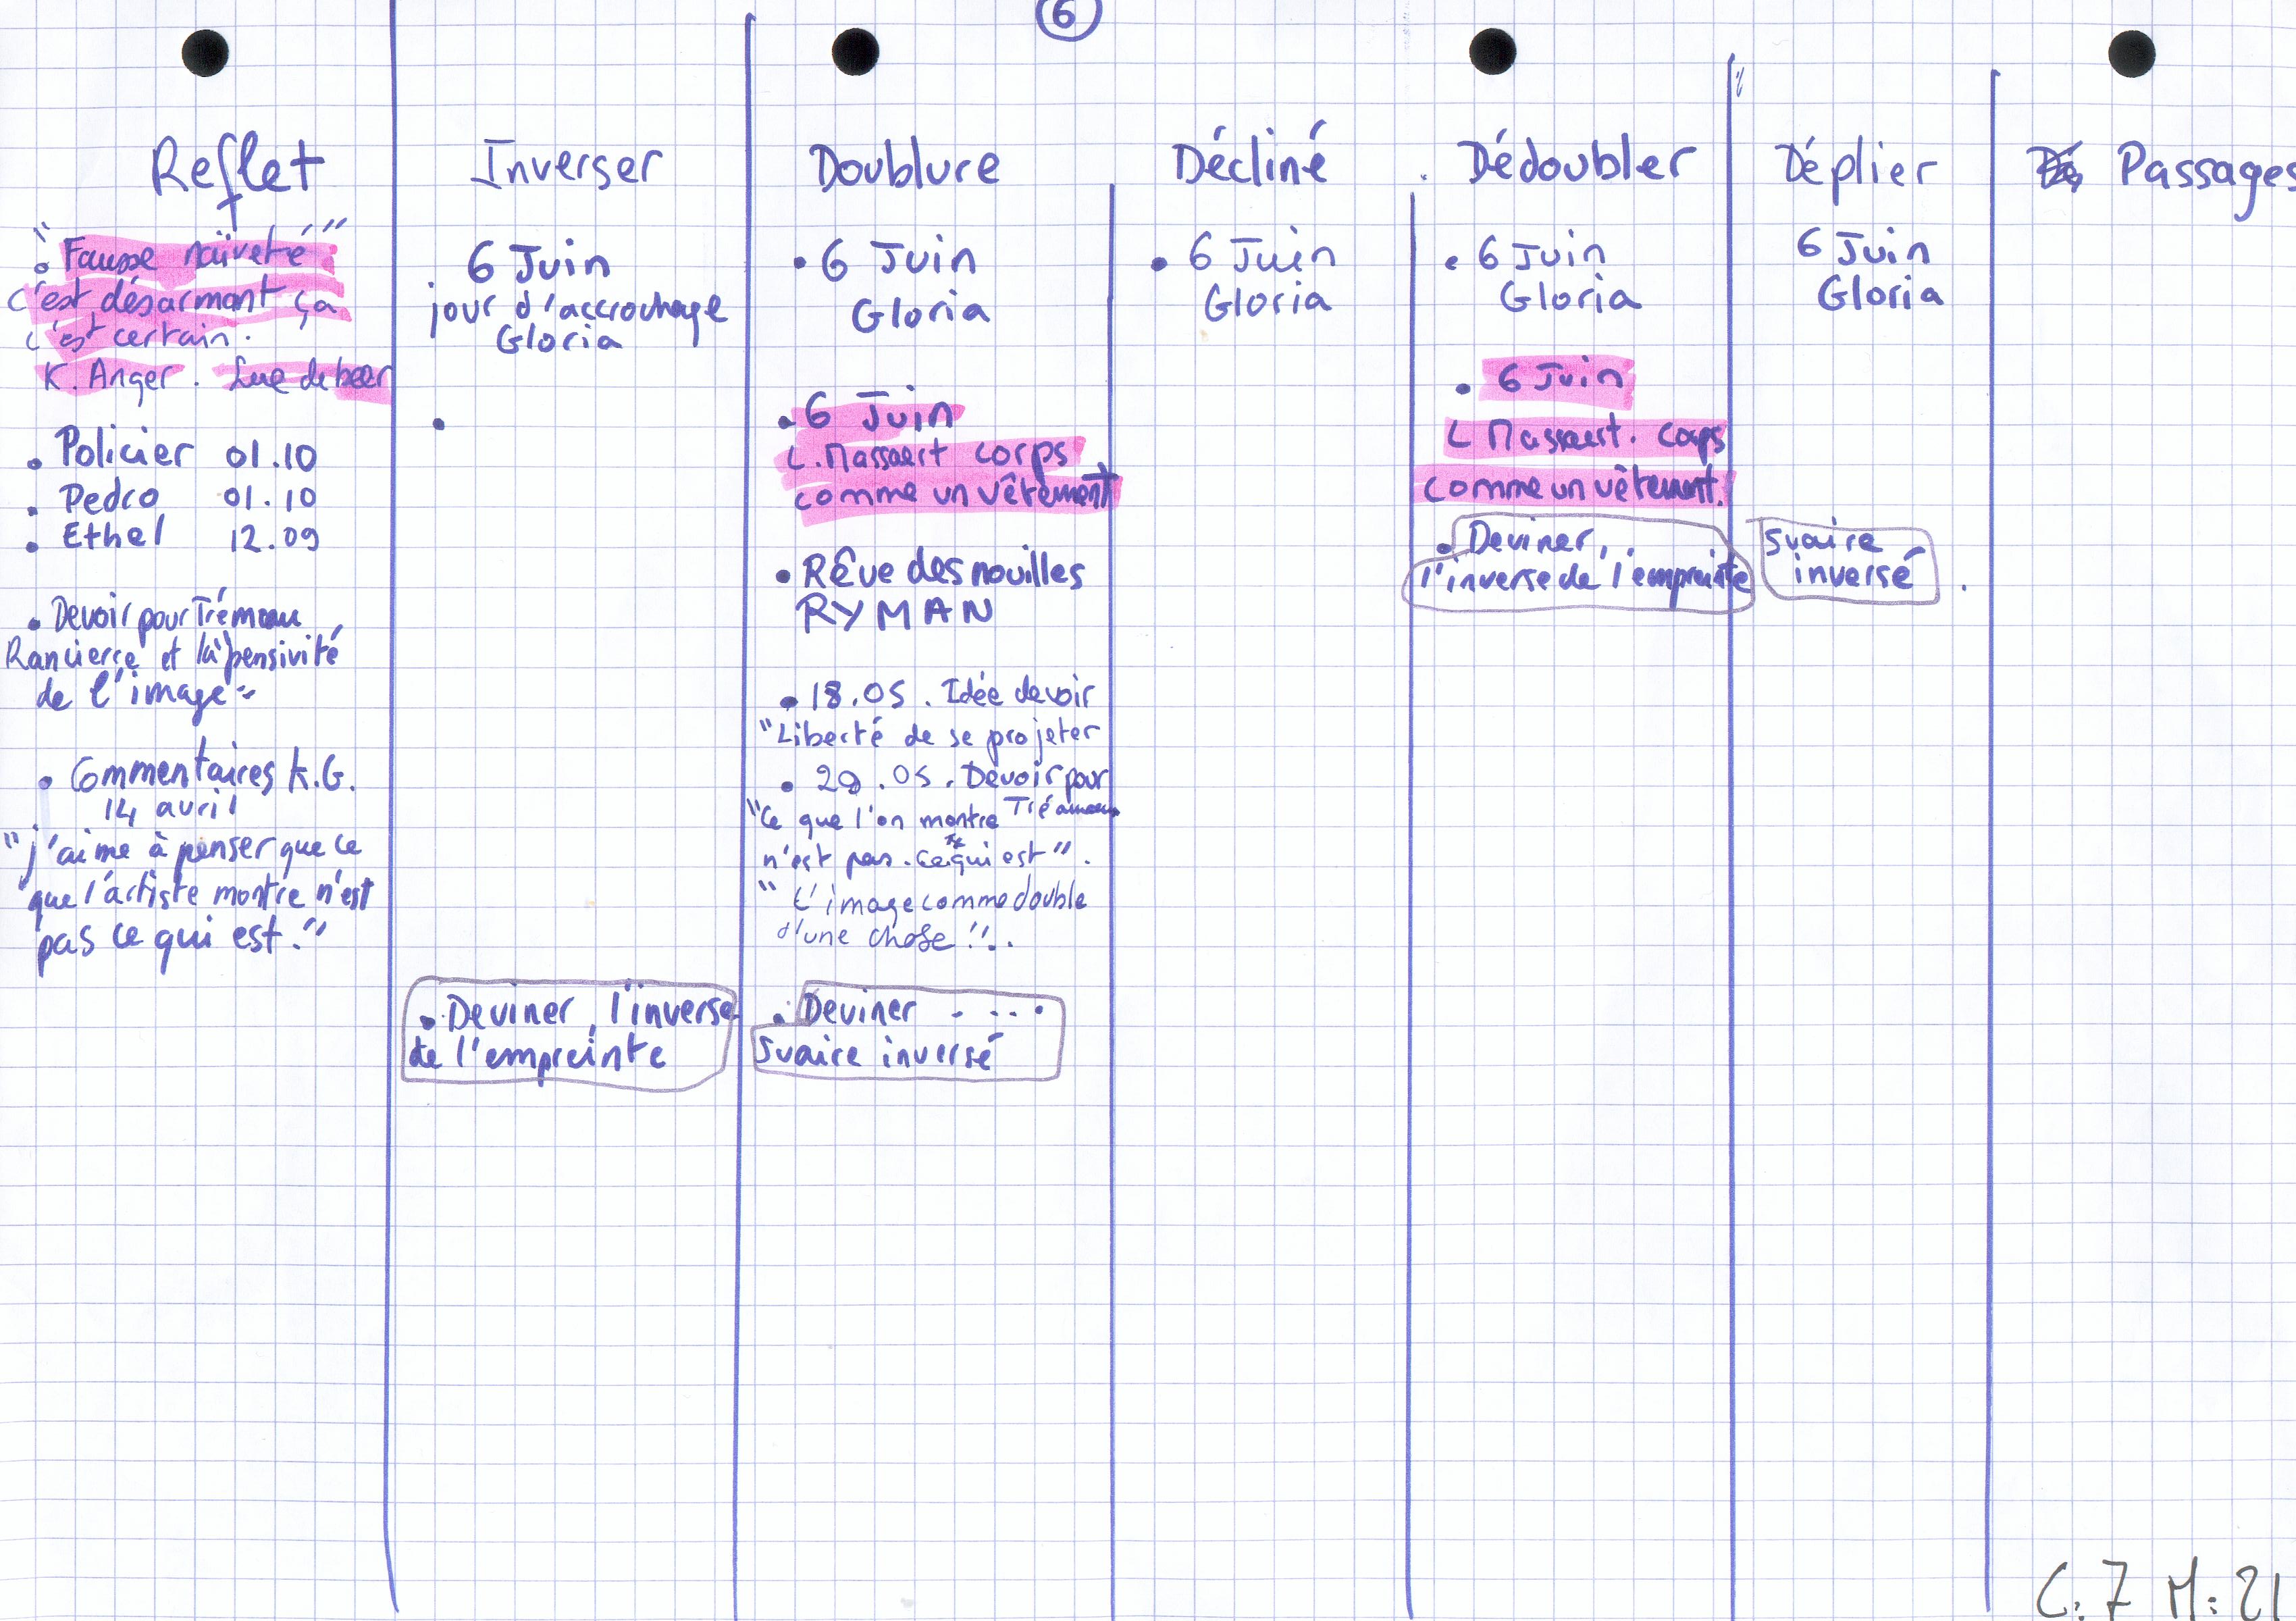 6
Reflet
"Fausse naïveté"
c'est désarmant ça
c'est certain.
K. Anger. Sue de beer
Policier 01.10
Pedro 01.10
Ethel 12.09
Devoir pour Trémeau
Ranciere et la "pensivité
de l'image"
Commentaires K.G.
14 avril
"j'aime à penser que ce
que l'artiste montre n'est
pas ce qui est."
Inverser
6 Juin
jour d'accrochage
Gloria
Deviner, l'inverse
de l'empreinte
Doublure
6 Juin
Gloria
6 Juin
L. Massaert corps
comme un vêtement
Rêve des nouilles
RYMAN
18.05. Idée devoir
"Liberté de se projeter
29.05. Devoir pour
Trémeau
"Ce que l'on montre
n'est pas ce qui est".
"L'image comme double
d'une chose"..
Deviner ....
Suaire inversé
Décliné
6 Juin
Gloria
Dédoubler
6 Juin
Gloria
6 Juin
L Massaert. Corps
comme un vêtement.
Deviner,
l'inverse de l'empreinte
Déplier
6 Juin
Gloria
Suaire
inversé
Passages
C:7 M:21